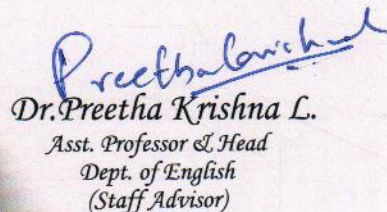 Dr.Preetha Krishna L.
Asst. Professor & Head
Dept. of English
(Staff Advisor)